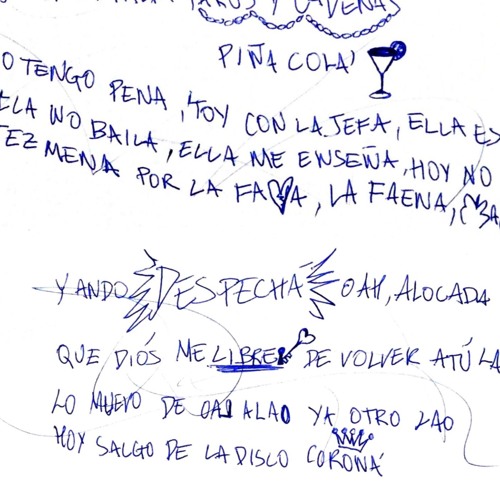 Y CADENAS
PIÑA COLA'
O TENGO PENA, 'TOY CON LA JEFA, ELLA ES
ELLA NO BAILA, ELLA ME ENSEÑA, HOY NO
TEZ MENA POR LA FAMA, LA FAENA,
Y ANDO DESPECHÁ OAH, ALOCADA
QUE DIÓS ME LIBRE DE VOLVER A TÚ LA
LO MUEVO DE OAL ALAO YA OTRO LAO
HOY SALGO DE LA DISCO CORONÁ